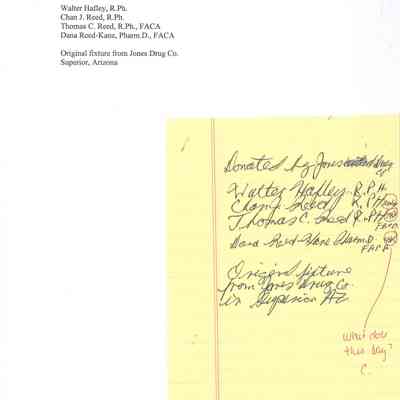 Walter Hafley, R.Ph.
Chan J. Reed, R.Ph.
Thomas C. Reed, R.Ph., FACA
Dana Reed-Kane, Pharm.D., FACA
Original fixture from Jones Drug Co.
Superior, Arizona
Donated by Jones Drug
Co
Walter Hafley R.P.H.
Reed R.P.H
Thomas C. Reed R.P.H
FACA
Dana Reed-Kane Pharm.D.
FACA
Original fixture
from Jones Drug Co.
in Superior AZ
What does
this say?
C.